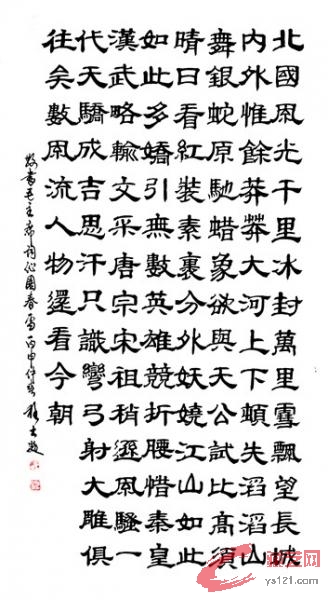 北國風光千里冰封萬里雪飄望長城
內外惟餘莽莽大河上下頓失滔滔山
舞銀蛇原馳蜡象欲與天公試比高須
晴日看紅裝素裹分外妖嬈江山如此
如此多嬌引無數英雄競折腰惜秦皇
漢武略輸文采唐宗宋祖稍遜風騷一
代天驕成吉思汗只識彎弓射大雕俱
往矣數風流人物還看今朝
敬書毛主席詞沁園春雪丙申仲
ys121.com